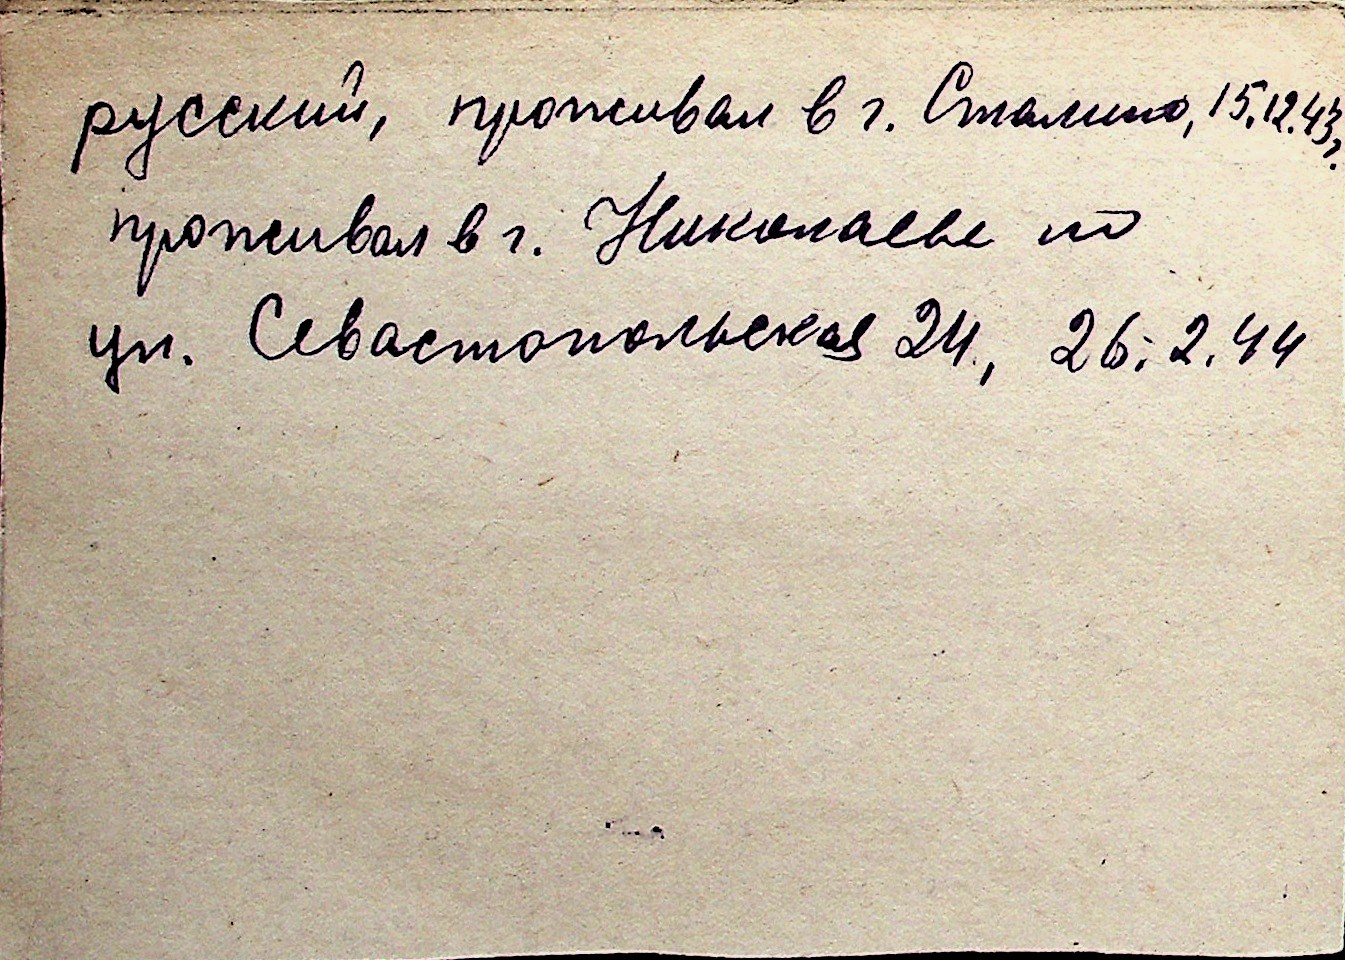 русский, проживал в г. Сталино, 15.12.43г.
проживал в г. Николаеве по
ул. Севастопольская 24, 26.2.44